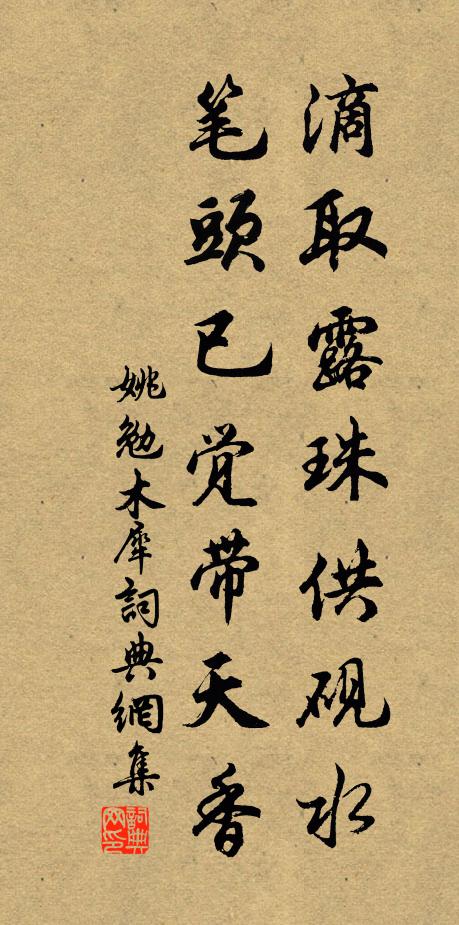 滴取露珠供砚水
笔頭已觉带天香
姚勉木犀詞典網集
詞典网印